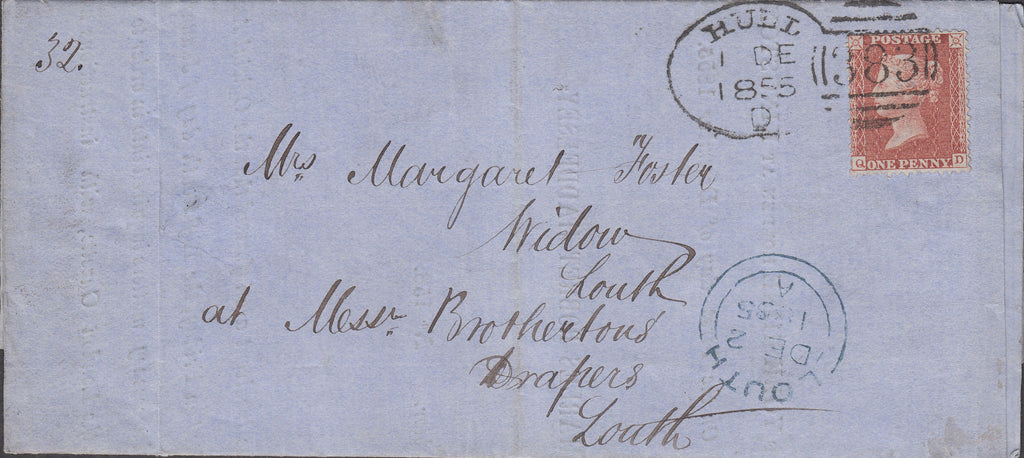 32.
HULL
1 DE
1855
D
383
POSTAGE
ONE PENNY.
Q D
Mrs Margaret Foster
Widow
Louth
at Messrs Brothertons
Drapers
Louth
LOUTH
DE 2
1855
A